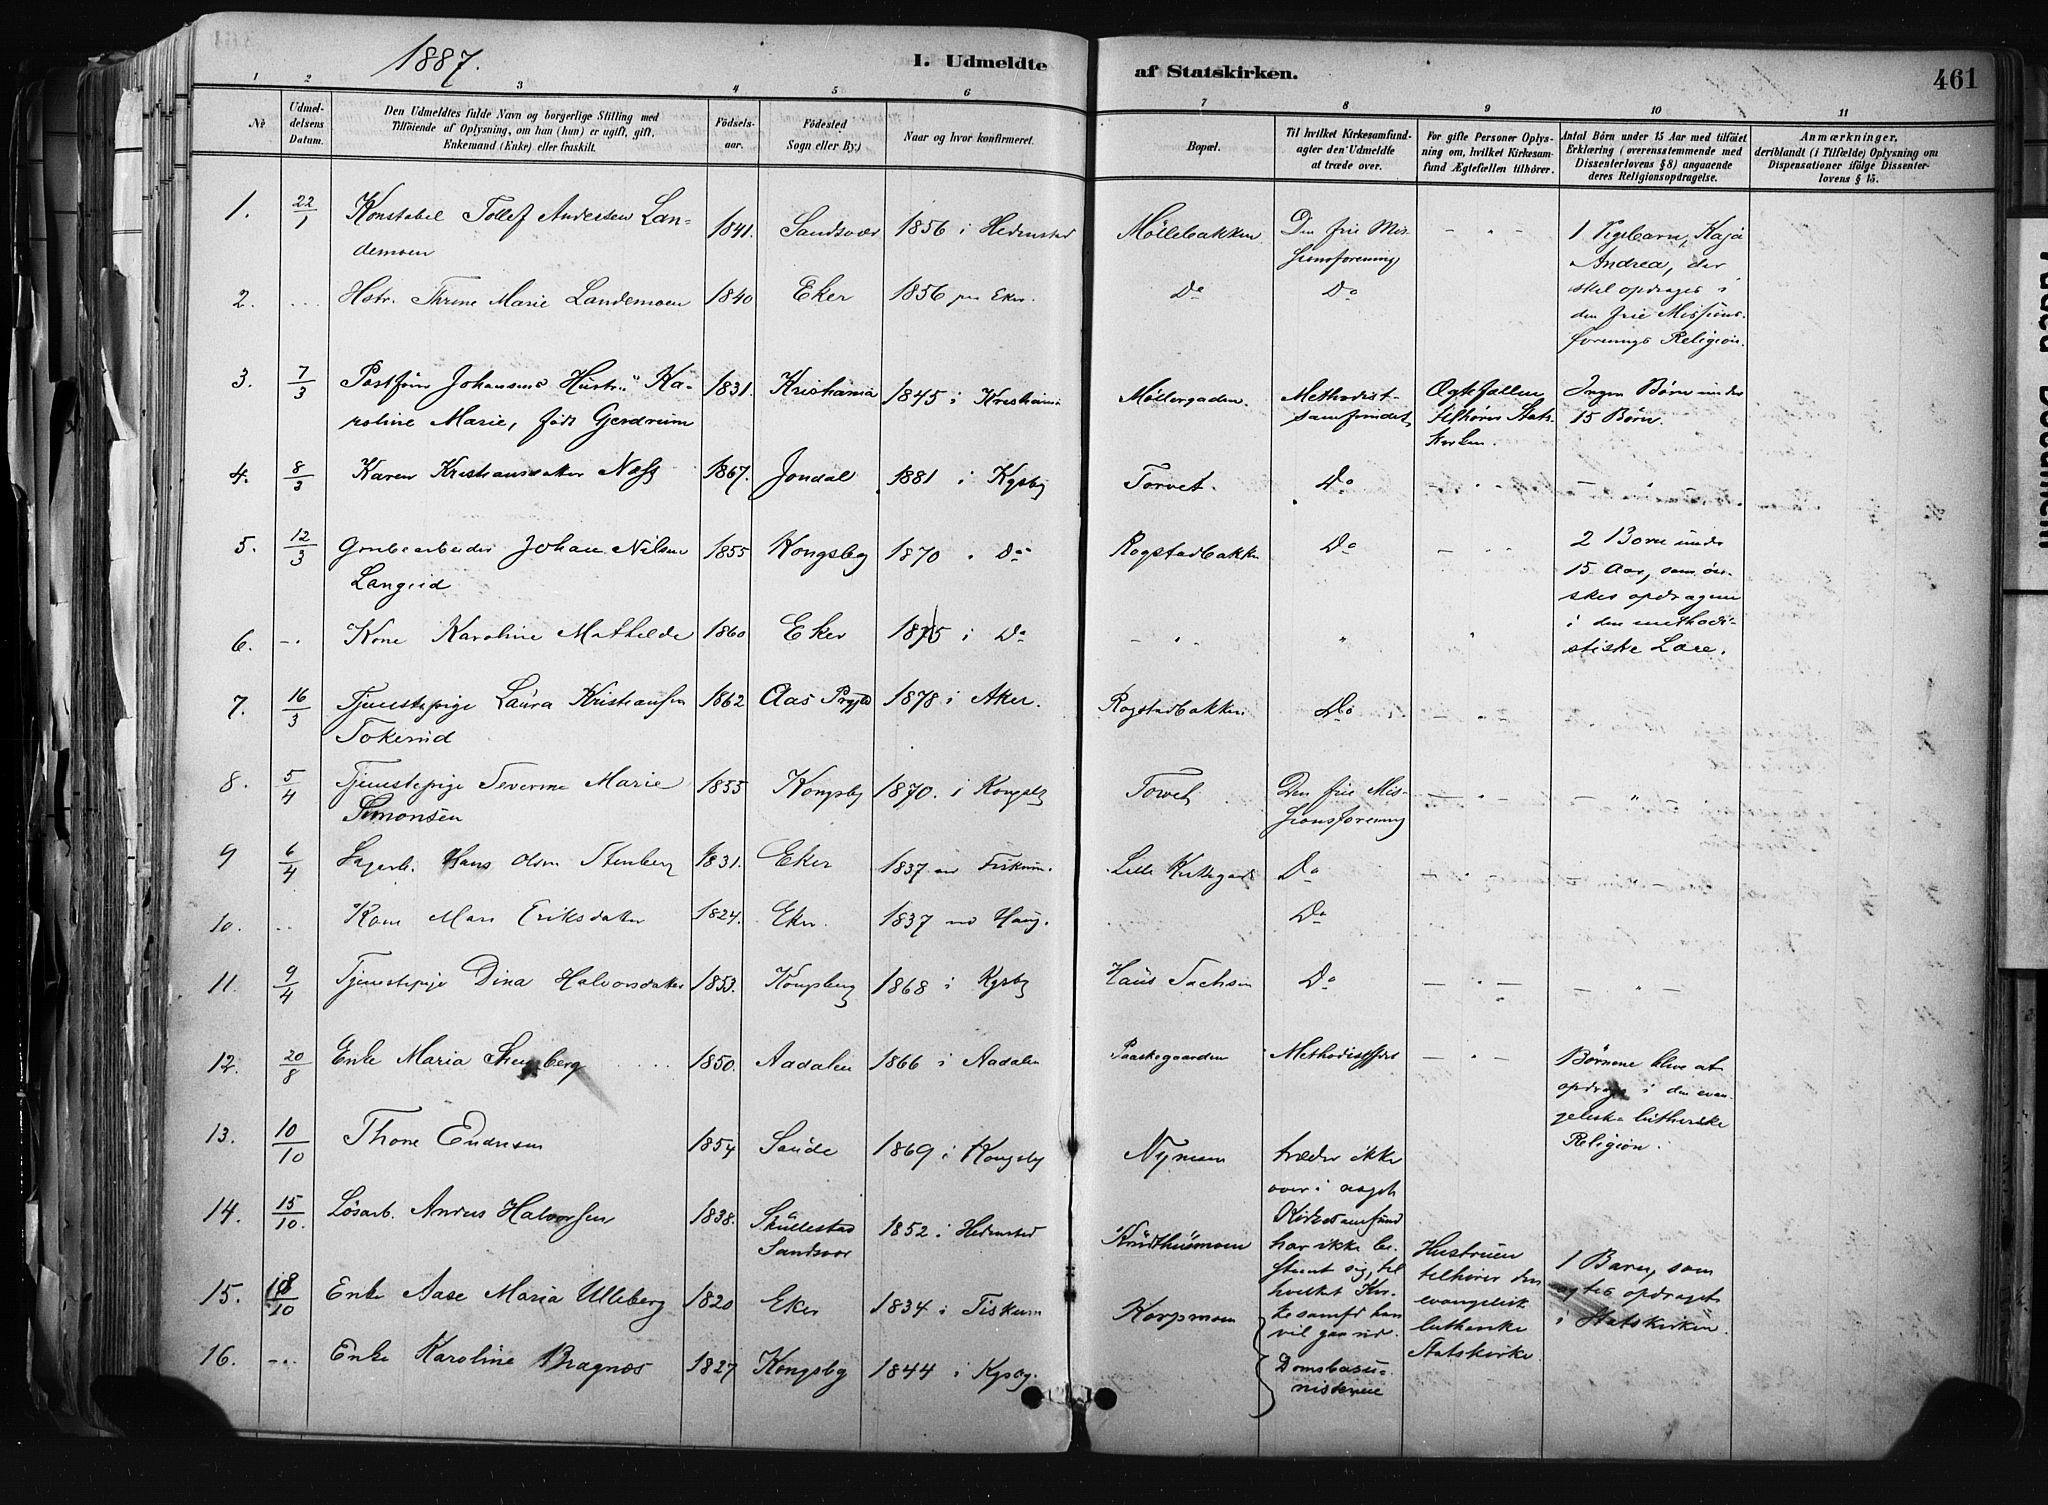 1887.
I. Udmeldte af Statskirken.
461
1 2 3 4 5 6 7 8 9 10 11
№
Udmeldelsens Datum.
Den Udmeldtes fulde Navn og borgerlige Stilling med Tilføiende af Oplysning, om han (hun) er ugift, gift, Enkemand (Enke) eller fraskilt.
Fødselsaar.
Fødested Sogn eller By.)
Naar og hvor konfirmeret.
Bopæl.
Til hvilket Kirkesamfund agter den Udmeldte at træde over.
For gifte Personer Oplysning om, hvilket Kirkesamfund Ægtefællen tilhører.
Antal Børn under 15 Aar med tilføiet Erklæring (overensstemmende med Dissenterlovens § 8) angaaende deres Religionsopdragelse.
Anmærkninger, deriblandt (i Tilfælde) Oplysning om Dispensationer ifølge Dissenterlovens § 15.
1. 22/1 Konstabel Tollef Andersen Lan= 1841. Sandsvær 1856 i Hedensted Møllebakken Den frie Mis- 1 Pigebarn, Kaja
demoen sionsforening Andrea, der
2. Hstr. Thrine Marie Landemoen 1840 Eker 1856 paa Eker. Do Do skal opdrages i
den frie Missions-
forenings Religion.
3. 7/3 Postfører Johansens Hustru Ka- 1831. Kristiania 1845 i Kristiania Møllergaden. Methodist- Ægtefællen Ingen Børn under
roline Marie, født Gjerdrum samfundet tilhører Stats- 15 Børn.
kirken.
4. 8/3 Karen Kristiansdatter Næss 1867. Jondal 1881 i Kgsbg Torvet. Do
5. 12/3 Grubearbeider Johan Nilsen 1855 Kongsbg 1870 " Do Rogstadbakken Do 2 Børn under
Langrud 15 Aar, som øn-
skes opdragne
6. Kone Karoline Mathilde 1860 Eker 1875 i Do i den methodi-
stiske Lære.
7. 16/3 Tjenestepige Laura Kristiansen 1862 Aas Prgjd 1878 i Aker. Rogstadbakken Do
Tokerud
8. 5/4 Tjenestepige Severine Marie 1855 Kongsbg 1870. i Kongsbg Torvet Den frie Mis-
Simonsen sionsforening
9 6/4 Hans Olsen Stenberg 1831. Eker 1837 ved Fiskum. Lille Kirkegade Do
10. Kone Mari Eriksdatter 1824. Eker. 1837 ved Haug. Do
11. 9/4 Tjenestepige Dina Halvorsdatter 1853. Kongsberg 1868 i Kgsbg Hans Sachsen Do
12. 20/8 Enke Maria 1850. Aadalen 1866 i Aadalen Paaskegaarden Børnene blive at
opdrage i den evan-
geliske lutherske
Religion.
13. 10/10 Thone Endresen 1854 Saude 1869 i Kongsbg Nymoen træder ikke
over i noget
Kirkesamfund
14. 15/10. Løsarb. Anders Halvorsen 1838. Skullestad 1852 i Hedensted har ikke be- Hustruen 1 Barn, som
Sandsvær stemt sig, til tilhører den agtes opdraget
15. 18/10 Enke Aase Maria Ulleberg 1820 Eker 1834 i Fiskum Korpmoen hvilket Kir- evangelisk i Statskirken.
kesamfd han lutherske
vil gaa ind. Statskirke
16. Enke Karoline Bragnæs 1827 Kongsbg 1844 i Kgsbg. Domsbasu-
nisterne